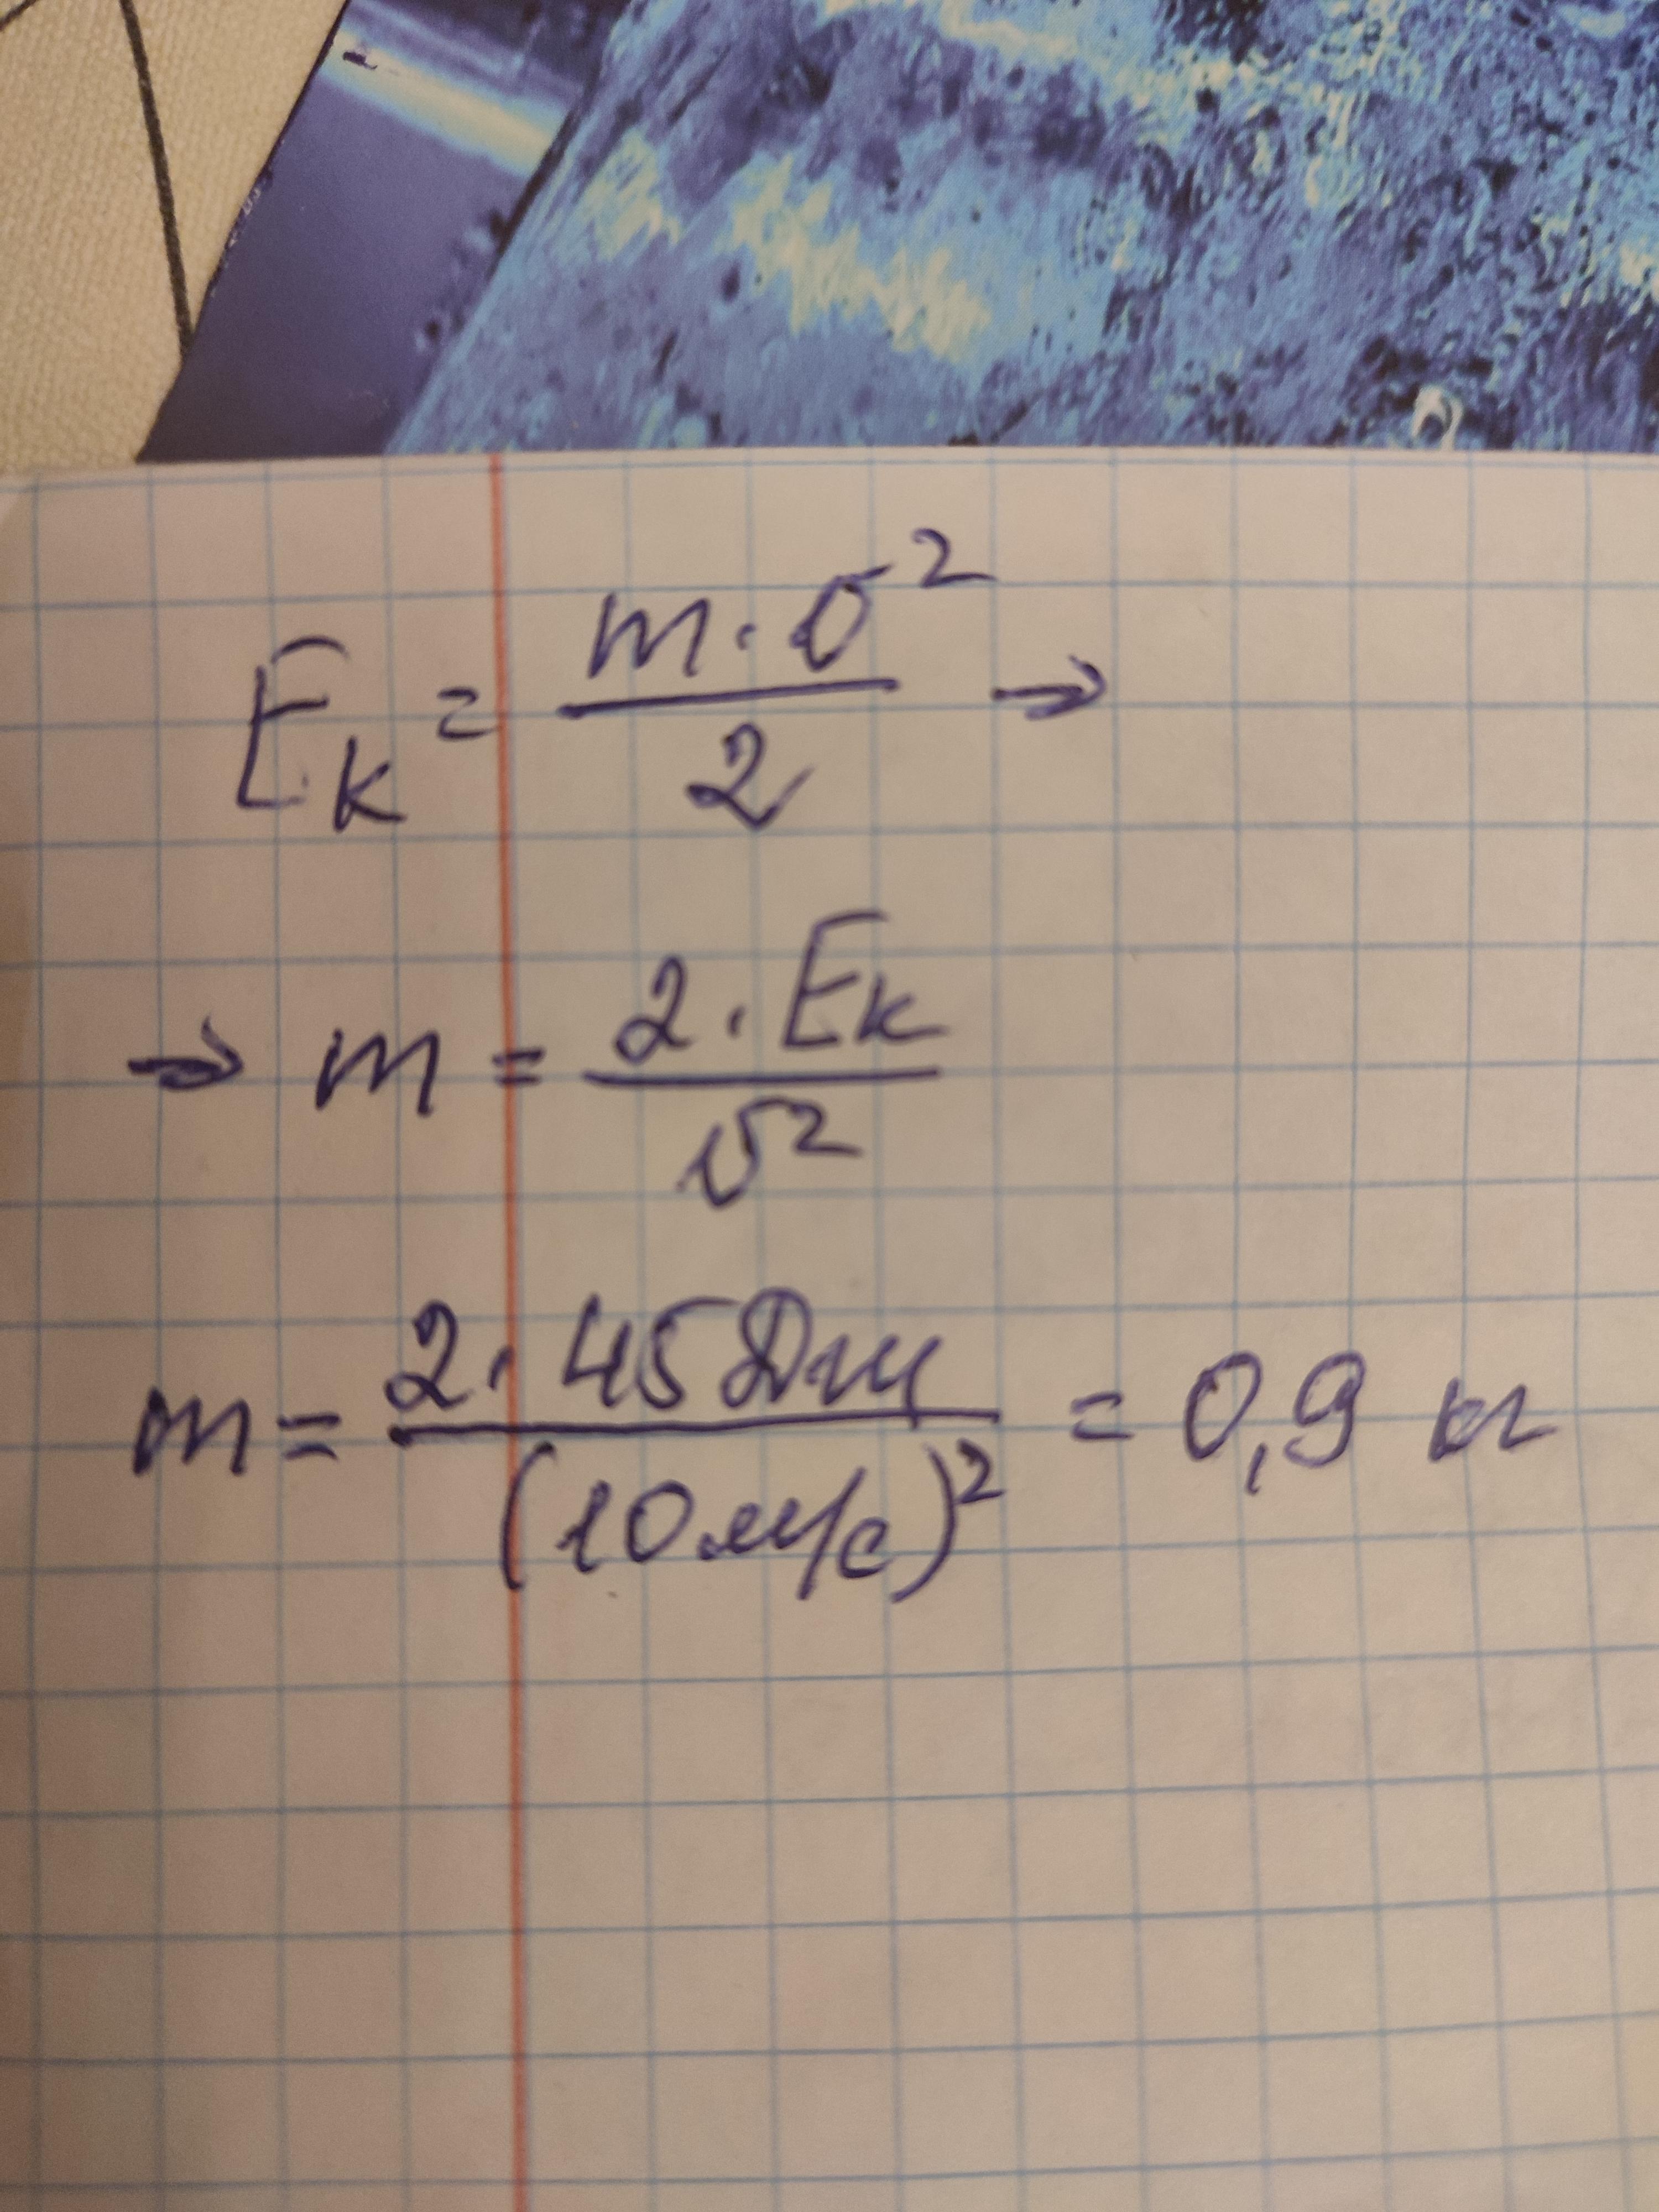 Eк = m·υ² / 2 →
→ m = 2·Eк / υ²
m = 2·45 Дж / (10 м/с)² = 0,9 кг